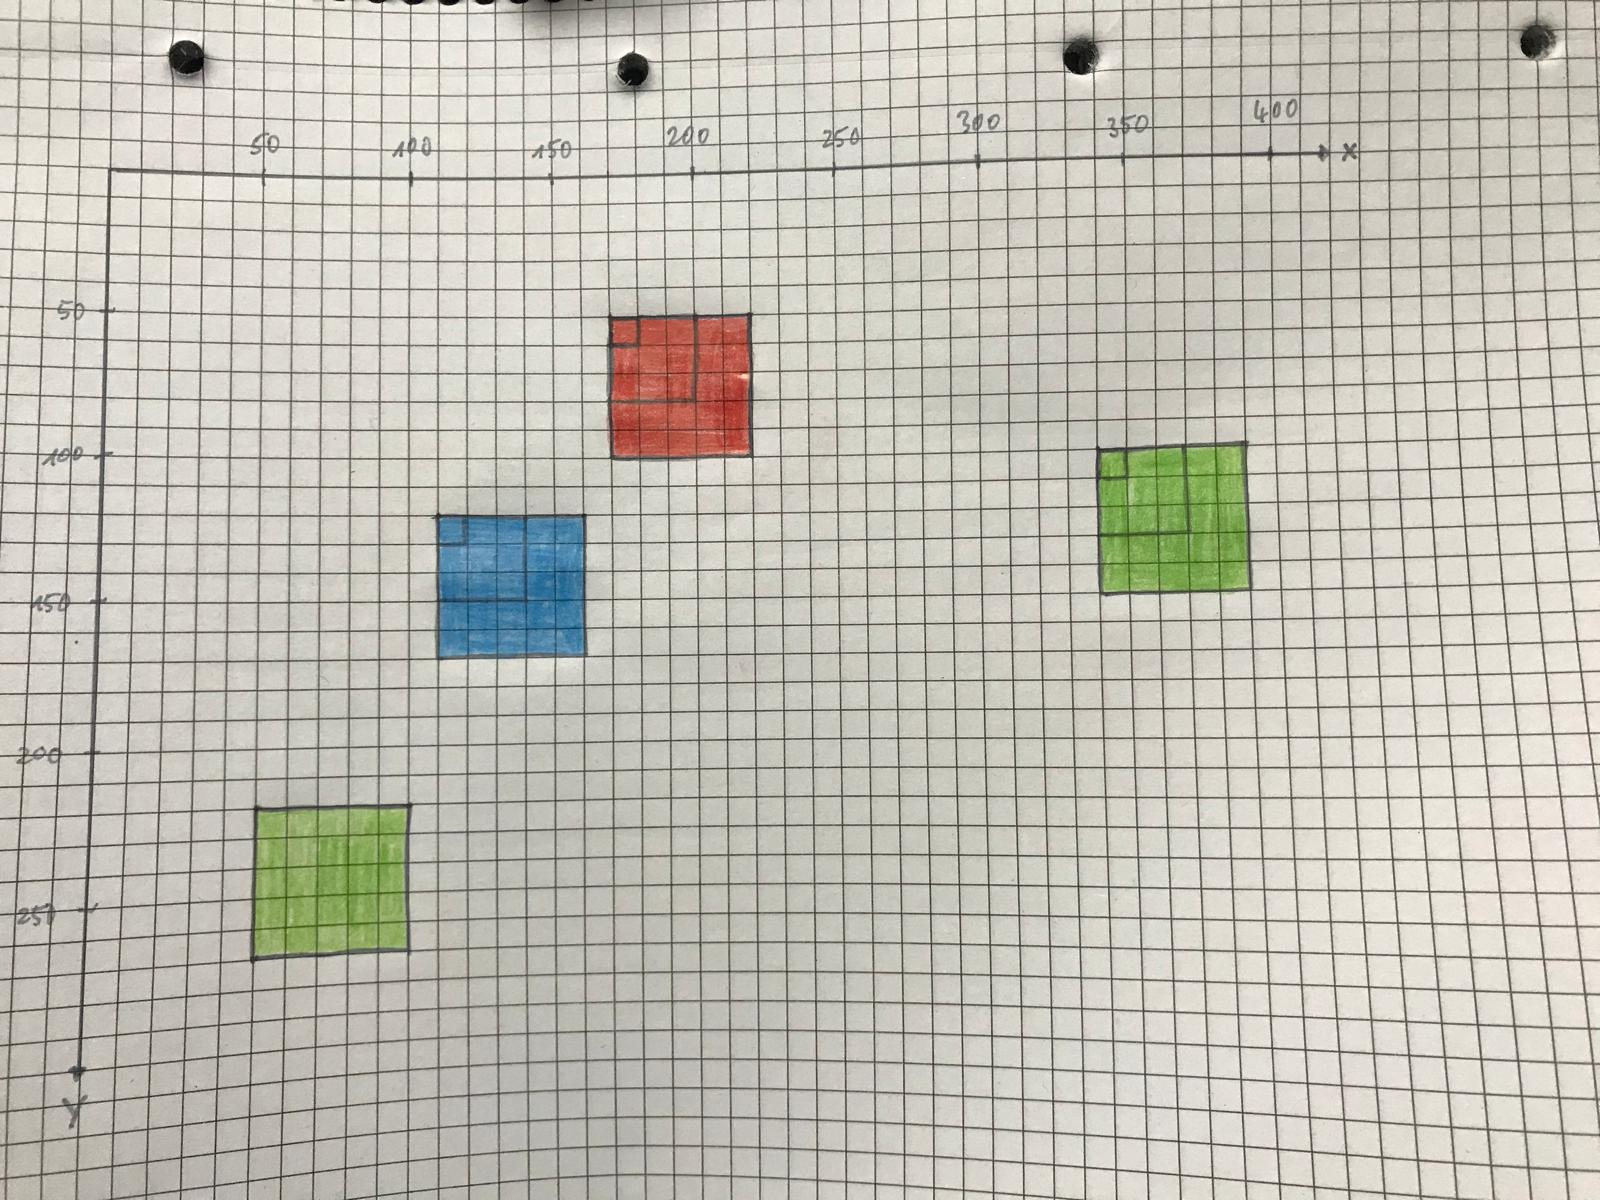 50 100 150 200 250 300 350 400 x
50
100
150
200
250
y